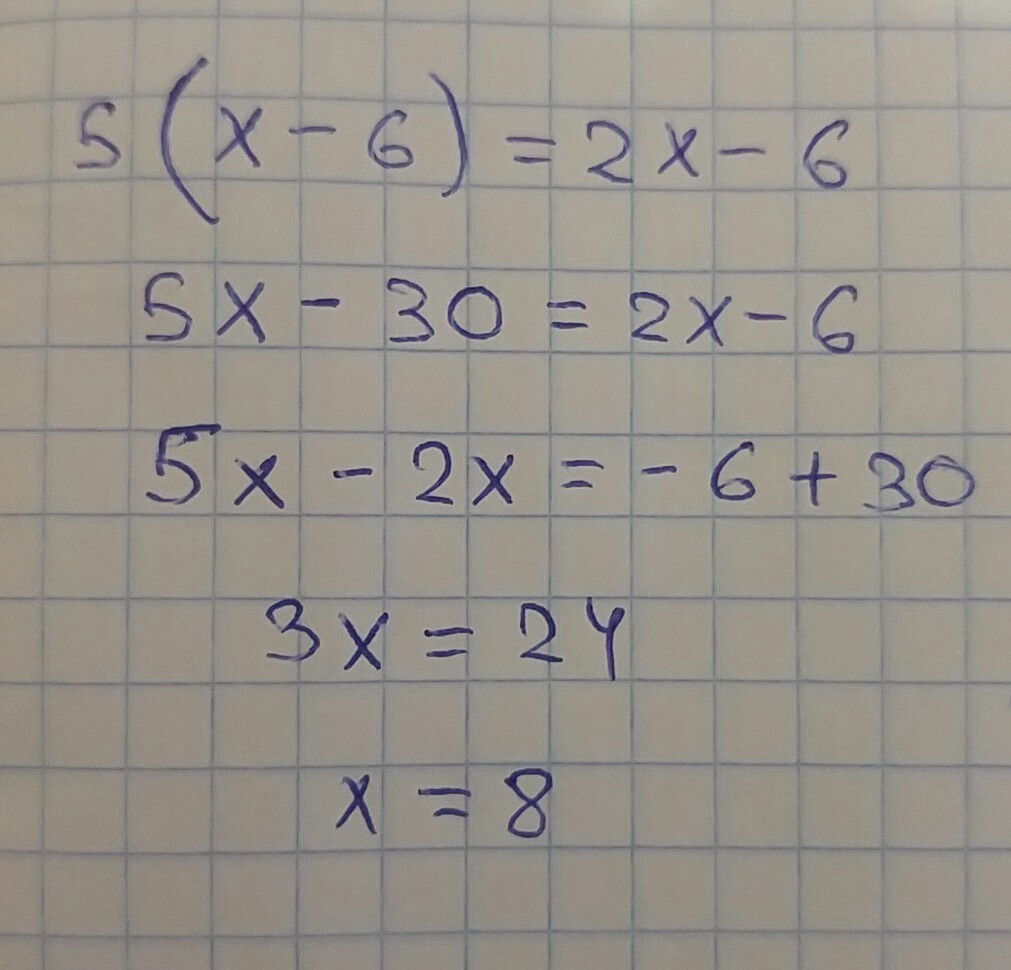 5(x - 6) = 2x - 6
5x - 30 = 2x - 6
5x - 2x = - 6 + 30
3x = 24
x = 8